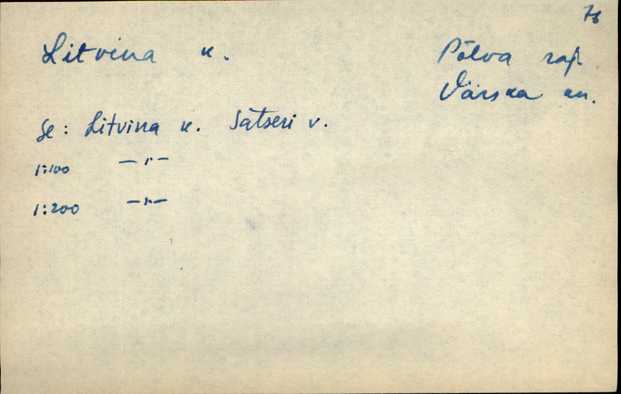 76
Litvina k.
Põlva raj.
Värska kn.
Se: Litvina k. Satseri v.
1:100 —"—
1:200 —"—